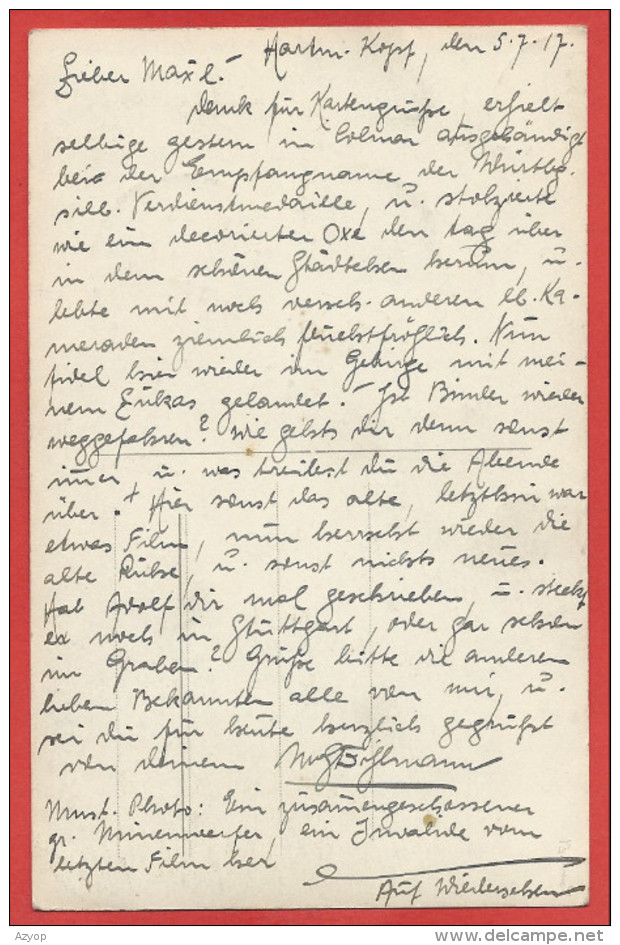 Hartm. Kopf, den 5.7.17.
Lieber Maxl!
Dank für Kartengrüße, erhielt
selbige gestern in Colmar ausgehändigt
bei der Eempfangname der Würtbg.
silb. Verdienstmedaille, u. stolzierte
wie ein decorierter Oxe den tag über
in dem schönen Städtchen herum, u.
lebte mit noch versch. anderen lb. Ka-
meraden ziemlich feuchtfröhlich. Nun
fidel hier wieder im Gebirge mit mei-
nem Lukas gelandet! Ist Bimler wieder
weggefahren? wie gehts dir denn sonst
immer u. was treibest du die Abende
über. + Hier sonst das alte, letzthin war
etwas Film, nun herrscht wieder die
alte Ruhe, u. sonst nichts neues.
Hat Adolf dir mal geschrieben, u. steckt
er noch in Stuttgart, oder gar schon
im Graben? Grüße bitte die anderen
lieben Bekannten alle von mir, u.
sei du für heute herzlich gegrüßt
von deinem
Umst. Photo: Ein zusammengeschossener
gr. Minenwerfer, ein Invalide vom
letzten Film her
Auf Wiedersehen
Azyop
www.delcampe.net